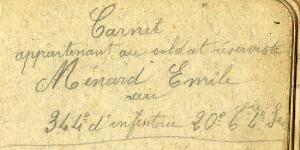 Carnet
appartenant au soldat réserviste
Ménard Emile
au
344e d'infenterie 20e Cie